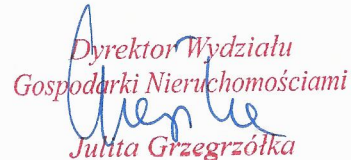 Dyrektor Wydziału
Gospodarki Nieruchomościami
Julita Grzegrzółka